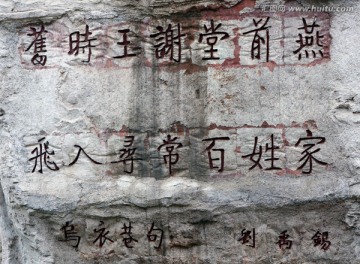 舊時王謝堂前燕
飛入尋常百姓家
烏衣巷句 劉禹錫
www.huitu.com